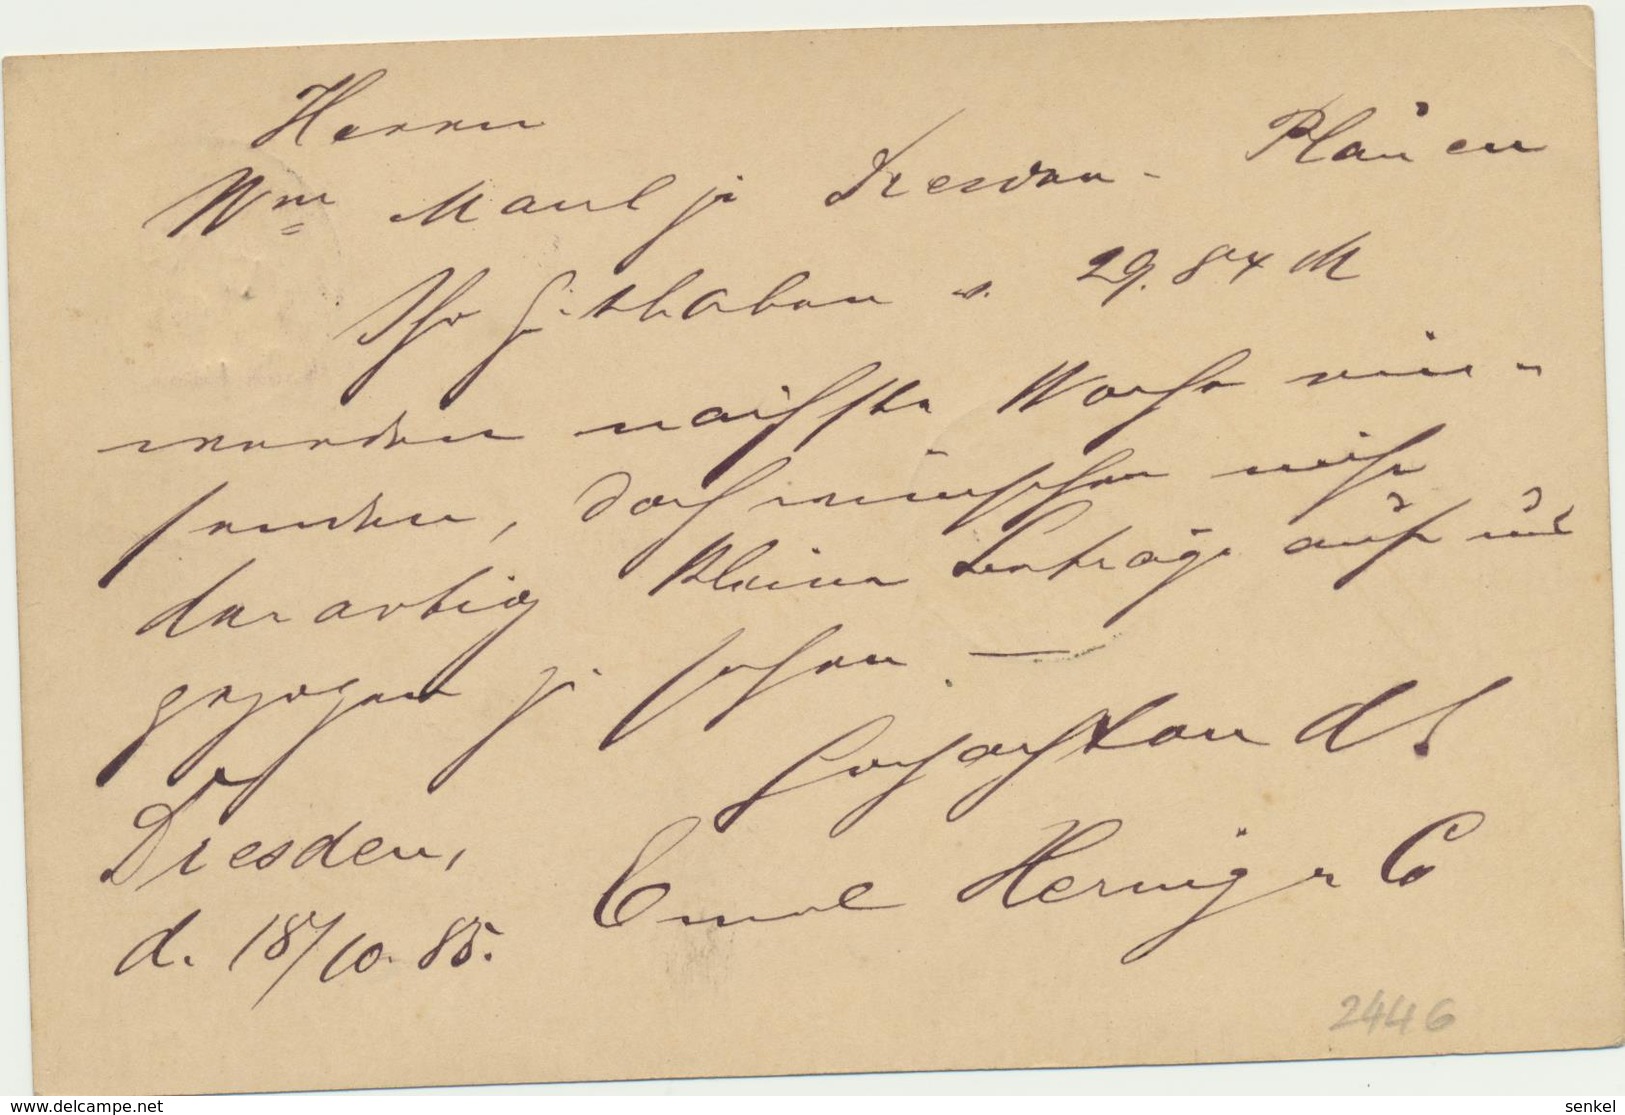 Herrn
Wm Maul jr Dresden - Plauen
Ihr Guthaben v. 29.84 M
werden nächste Woche ein-
senden, doch wünschen nicht
derartig kleine Beträge auf uns
gezogen zu sehen —
Hochachtend
Dresden,
Emil Hernig & Co
d. 18/10. 85.
2446
www.delcampe.net
senkel